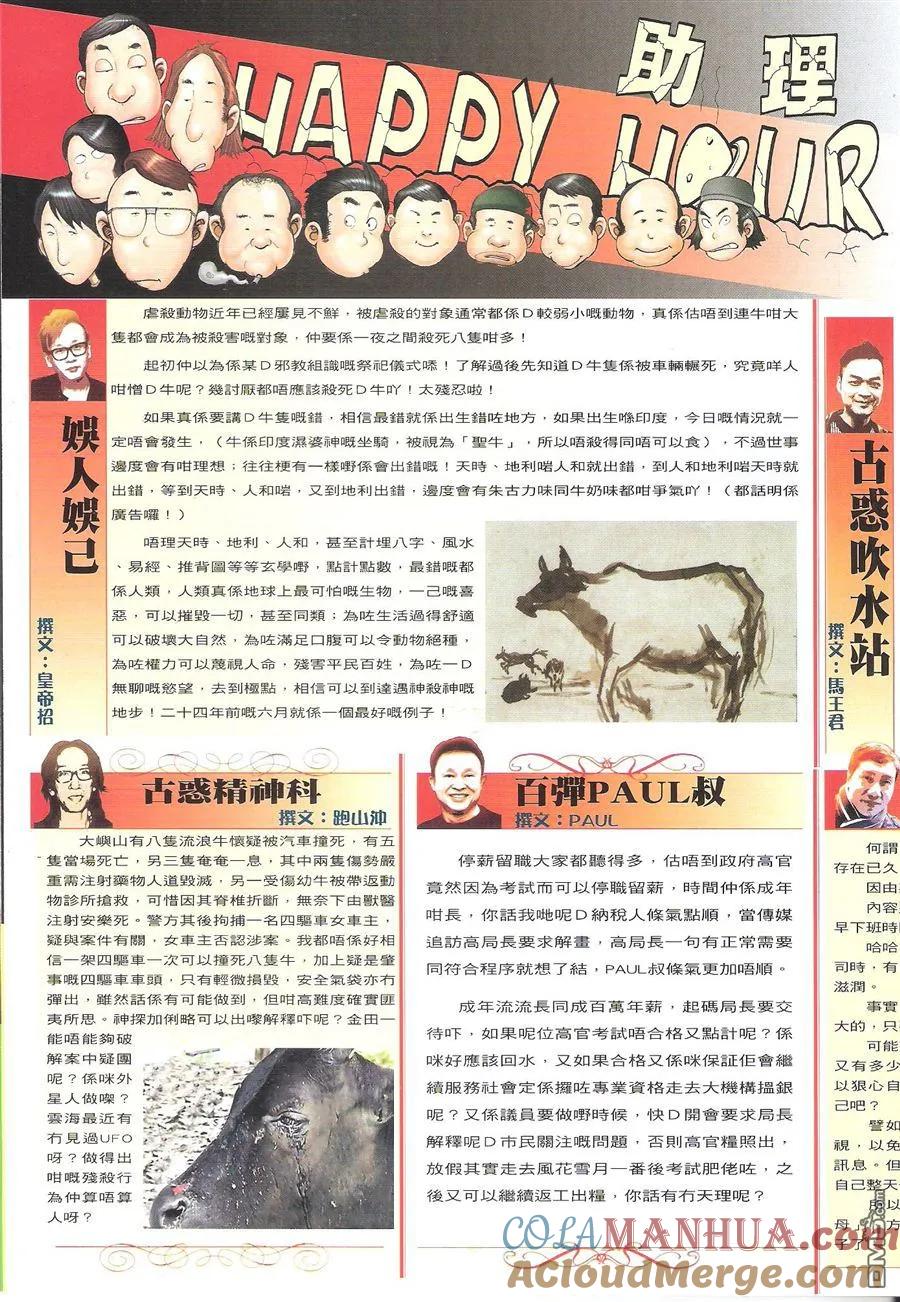 助理
HAPPY HOUR
娛人娛己
撰文：皇帝招
虐殺動物近年已經屢見不鮮，被虐殺的對象通常都係D較弱小嘅動物，真係估唔到連牛咁大
隻都會成為被殺害嘅對象，仲要係一夜之間殺死八隻咁多！
起初仲以為係某D邪教組織嘅祭祀儀式㖭！了解過後先知道D牛隻係被車輛輾死，究竟咩人
咁憎D牛呢？幾討厭都唔應該殺死D牛吖！太殘忍啦！
如果真係要講D牛隻嘅錯，相信最錯就係出生錯咗地方，如果出生喺印度，今日嘅情況就一
定唔會發生，（牛係印度濕婆神嘅坐騎，被視為「聖牛」，所以唔殺得同唔可以食），不過世事
邊度會有咁理想；往往梗有一樣嘢係會出錯嘅！天時、地利啱人和就出錯，到人和地利啱天時就
出錯，等到天時、人和啱，又到地利出錯，邊度會有朱古力味同牛奶味都咁爭氣吖！（都話明係
廣告囉！）
唔理天時、地利、人和，甚至計埋八字、風水
、易經、推背圖等等玄學嘢，點計點數，最錯嘅都
係人類，人類真係地球上最可怕嘅生物，一己嘅喜
惡，可以摧毀一切，甚至同類；為咗生活過得舒適
可以破壞大自然，為咗滿足口腹可以令動物絕種，
為咗權力可以蔑視人命，殘害平民百姓，為咗一D
無聊嘅慾望，去到極點，相信可以到達遇神殺神嘅
地步！二十四年前嘅六月就係一個最好嘅例子！
古惑吹水站
撰文：馬王君
古惑精神科
撰文：跑山沖
大嶼山有八隻流浪牛懷疑被汽車撞死，有五
隻當場死亡，另三隻奄奄一息，其中兩隻傷勢嚴
重需注射藥物人道毀滅，另一受傷幼牛被帶返動
物診所搶救，可惜因其脊椎折斷，無奈下由獸醫
注射安樂死。警方其後拘捕一名四驅車女車主，
疑與案件有關，女車主否認涉案。我都唔係好相
信一架四驅車一次可以撞死八隻牛，加上疑是肇
事嘅四驅車車頭，只有輕微損毀，安全氣袋亦冇
彈出，雖然話係有可能做到，但咁高難度確實匪
夷所思。神探加俐略可以出嚟解釋吓呢？金田一
能唔能夠破
解案中疑團
呢？係咪外
星人做㗎？
雲海最近有
冇見過UFO
呀？做得出
咁嘅殘殺行
為仲算唔算
人呀？
百彈PAUL叔
撰文：PAUL
停薪留職大家都聽得多，估唔到政府高官
竟然因為考試而可以停職留薪，時間仲係成年
咁長，你話我哋呢D納稅人條氣點順，當傳媒
追訪高局長要求解畫，高局長一句有正常需要
同符合程序就想了結，PAUL叔條氣更加唔順。
成年流流長同成百萬年薪，起碼局長要交
待吓，如果呢位高官考試唔合格又點計呢？係
咪好應該回水，又如果合格又係咪保証佢會繼
續服務社會定係攞咗專業資格走去大機構搵銀
呢？又係議員要做嘢時候，快D開會要求局長
解釋呢D市民關注嘅問題，否則高官糧照出，
放假其實走去風花雪月一番後考試肥佬咗，之
後又可以繼續返工出糧，你話有冇天理呢？
何謂
存在已久
因由
內容
早下班時
哈哈
司時，有
滋潤。
事實
大的，只
可能
又有多少
以狠心自
己吧？
譬如
視，以免
訊息。但
自己整天
所以
母
COLAMANHUA.com
ACloudMerge.com